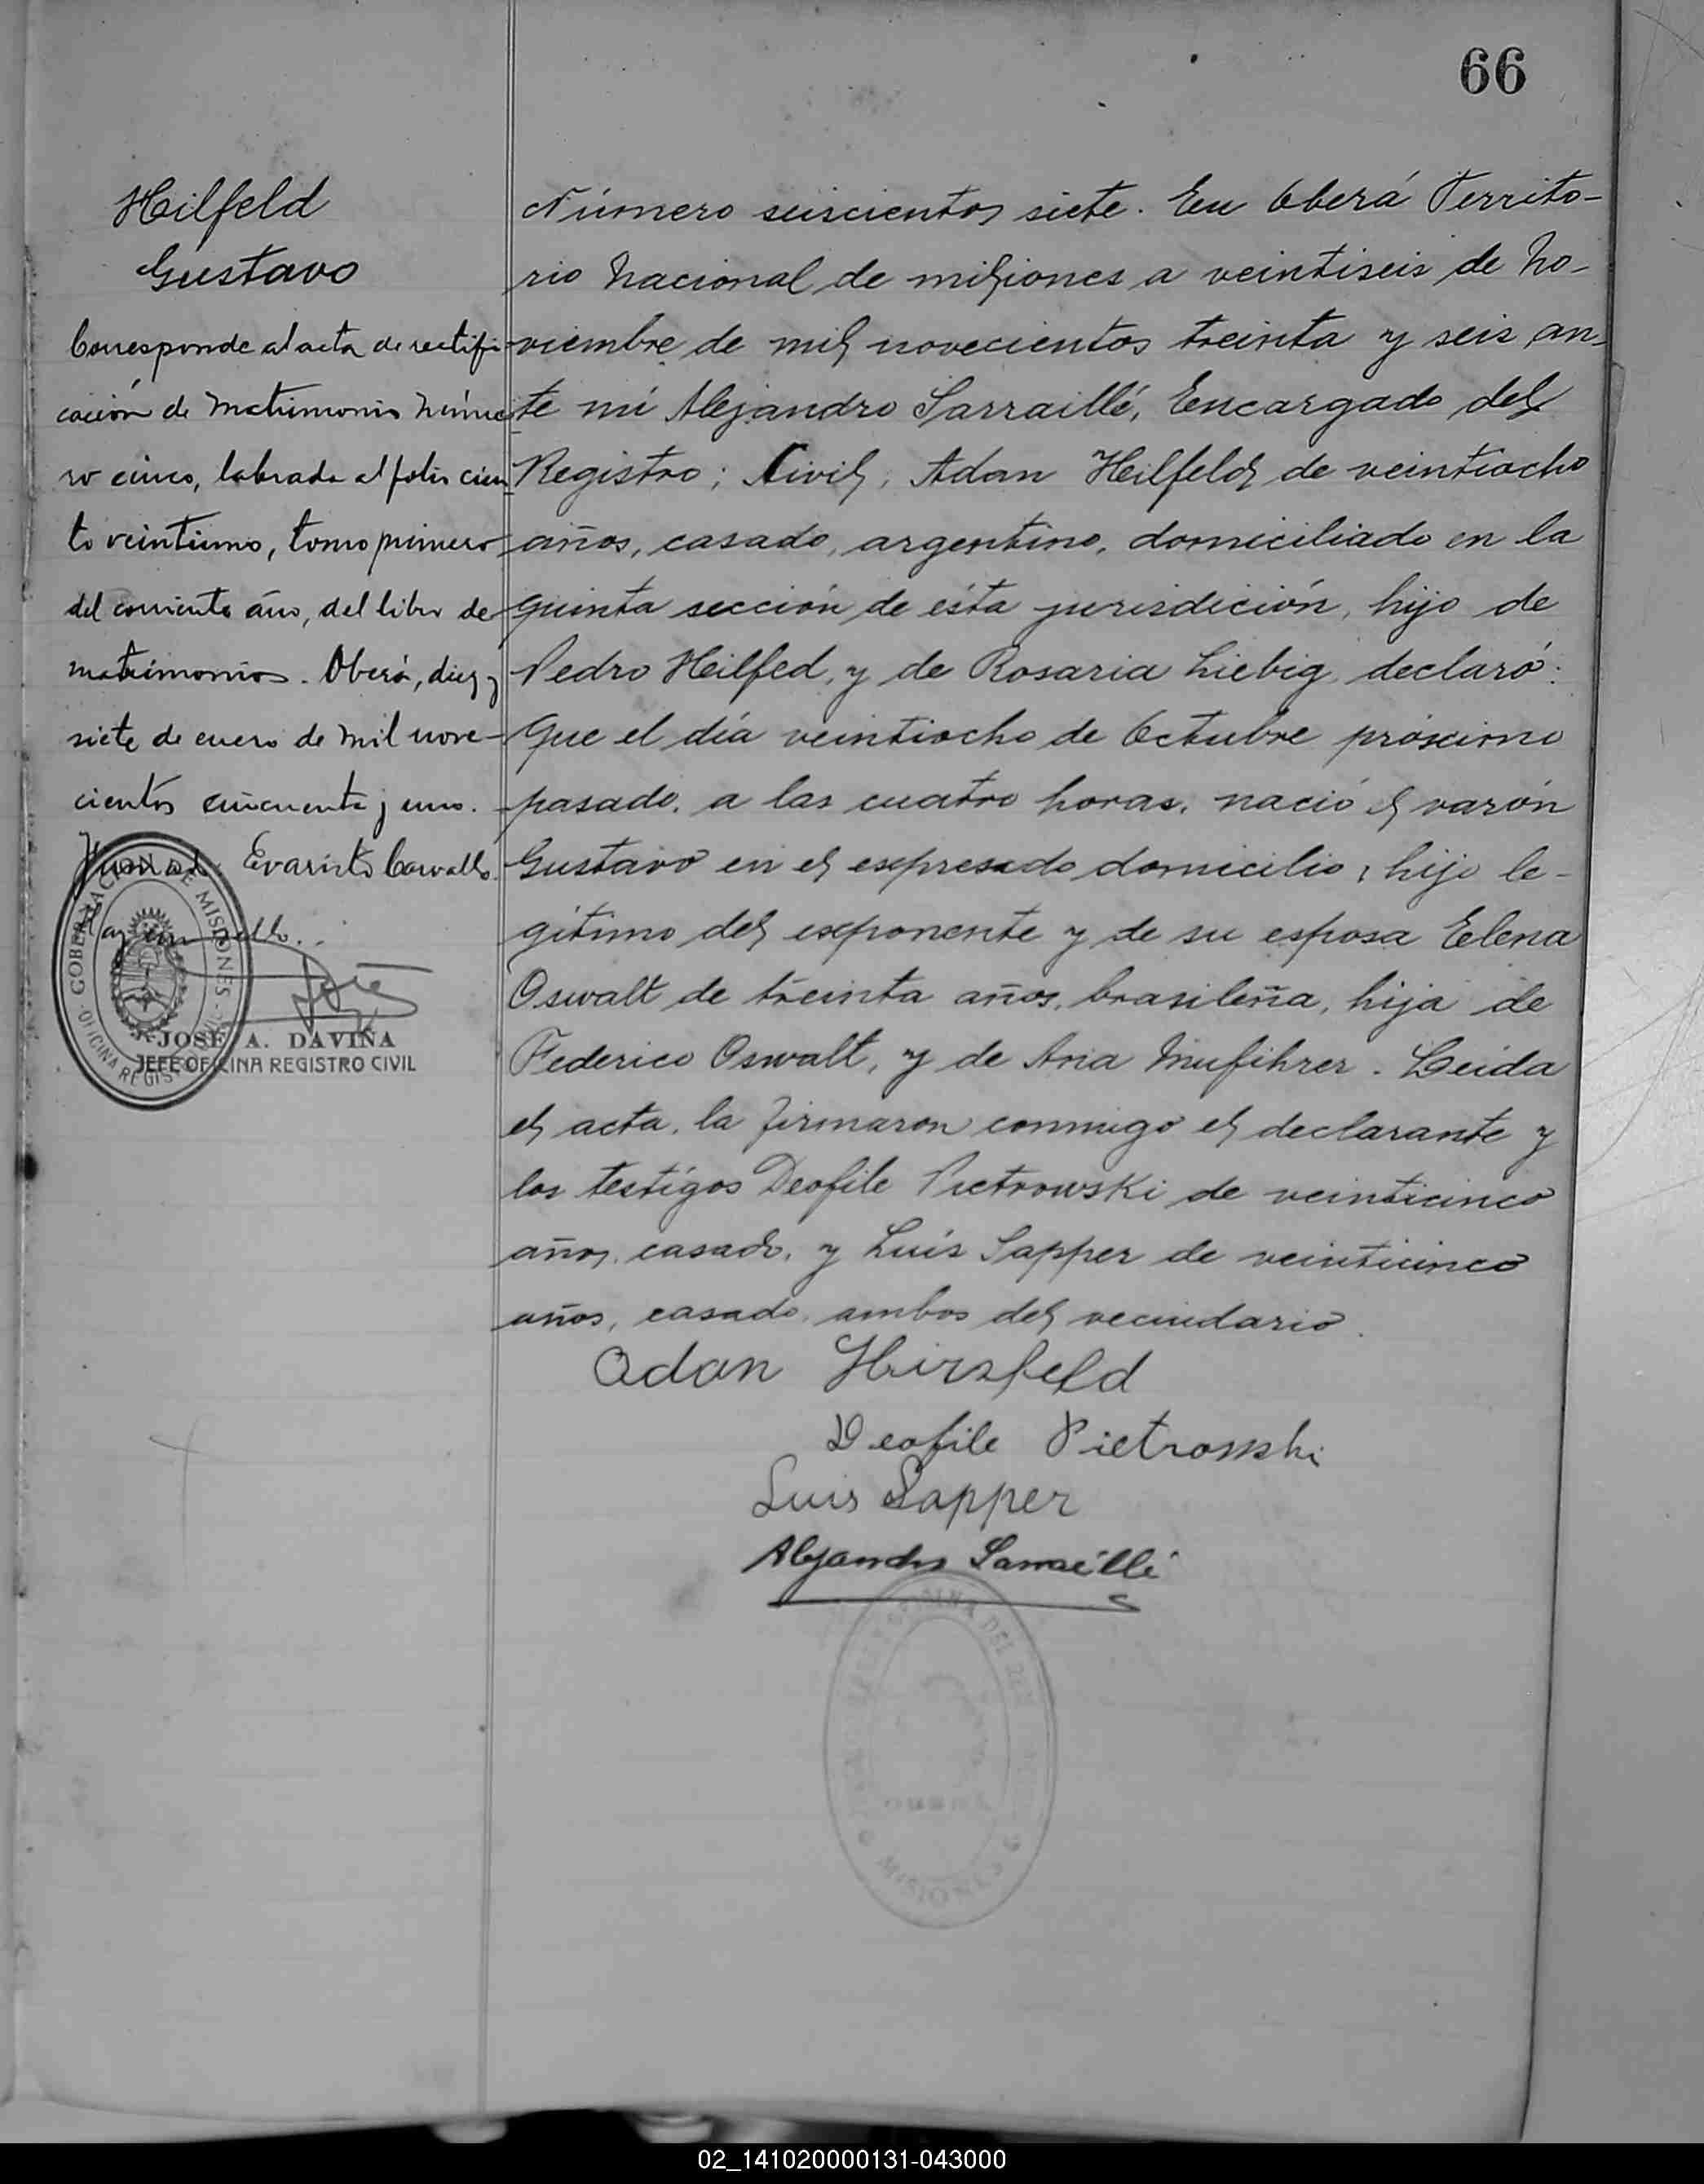 66
Heilfeld
Gustavo
Corresponde al acta de rectifi-
cación de Matrimonio Núme-
ro cinco, labrada al folio cien
to veintiuno, tomo primero
del corriente año, del libro de
matrimonios. Oberá, diez y
siete de enero de mil nove-
cientos cincuenta y uno.
Evaristo Carvallo.
Hay un sello.
GOBERNACION DE MISIONES
OFICINA REGISTRO CIVIL
JOSE A. DAVIÑA
JEFE OFICINA REGISTRO CIVIL
Número seiscientos siete. En Oberá Territo-
rio Nacional de misiones a veintiseis de No-
viembre de mil novecientos treinta y seis an-
te mí Alejandro Sarraillé, Encargado del
Registro; Civil, Adan Heilfeld de veintiocho
años, casado, argentino, domiciliado en la
quinta sección de ésta jurisdición, hijo de
Pedro Heilfed, y de Rosaria Liebig, declaró:
Que el día veintiocho de Octubre próximo
pasado, a las cuatro horas, nació el varón
Gustavo en el expresado domicilio, hijo le-
gitimo del exponente y de su esposa Elena
Oswalt de treinta años, brasileña, hija de
Federico Oswalt, y de Ana Mufihrer. Leida
el acta, la firmaron conmigo el declarante y
los testigos Deofile Pietrowski de veinticinco
años, casado, y Luís Sapper de veinticinco
años, casado, ambos del vecindario.
Adan Hirsfeld
Deofile Pietrowski
Luis Sapper
Alejandro Sarraillé
MISIONES
02_141020000131-043000